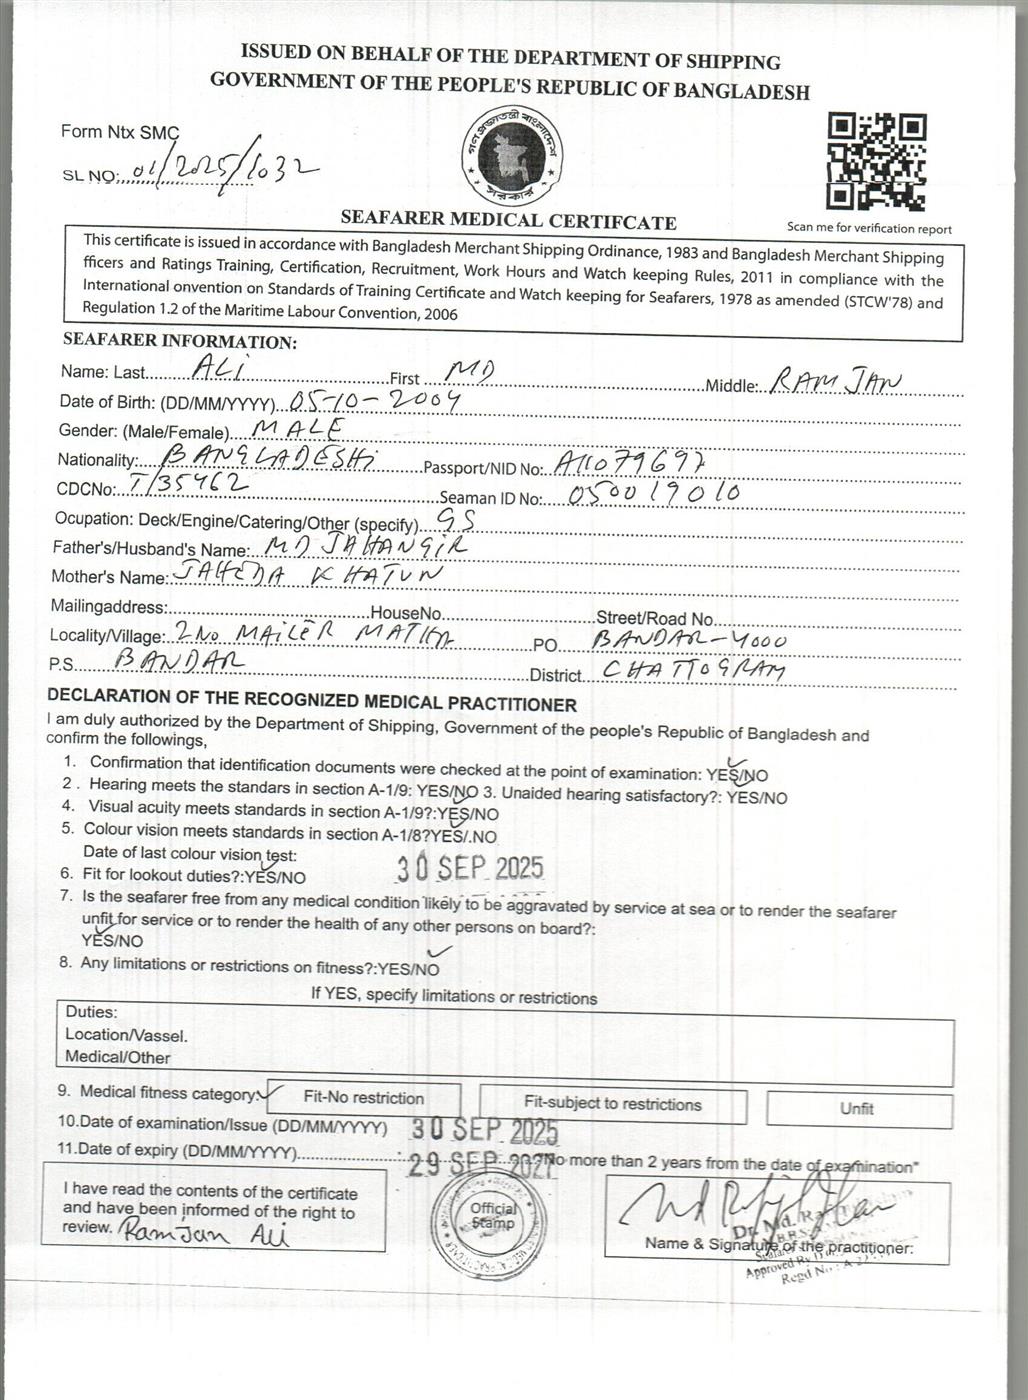 ISSUED ON BEHALF OF THE DEPARTMENT OF SHIPPING
GOVERNMENT OF THE PEOPLE'S REPUBLIC OF BANGLADESH
Form Ntx SMC
SL NO:..01/2025/1032
গণপ্রজাতন্ত্রী বাংলাদেশ
সরকার
SEAFARER MEDICAL CERTIFCATE
Scan me for verification report
This certificate is issued in accordance with Bangladesh Merchant Shipping Ordinance, 1983 and Bangladesh Merchant Shipping
fficers and Ratings Training, Certification, Recruitment, Work Hours and Watch keeping Rules, 2011 in compliance with the
International onvention on Standards of Training Certificate and Watch keeping for Seafarers, 1978 as amended (STCW'78) and
Regulation 1.2 of the Maritime Labour Convention, 2006
SEAFARER INFORMATION:
Name: Last ALI First MD Middle: RAMJAN
Date of Birth: (DD/MM/YYYY) 05-10-2004
Gender: (Male/Female) MALE
Nationality: BANGLADESHI Passport/NID No: A11079697
CDCNo: T/35462 Seaman ID No: 050019010
Ocupation: Deck/Engine/Catering/Other (specify) GS
Father's/Husband's Name: MD JAHANGIR
Mother's Name: JAHEDA KHATUN
Mailingaddress: HouseNo Street/Road No
Locality/Village: 2 NO MAILER MATHA PO BANDAR-4000
P.S BANDAR District CHATTOGRAM
DECLARATION OF THE RECOGNIZED MEDICAL PRACTITIONER
I am duly authorized by the Department of Shipping, Government of the people's Republic of Bangladesh and
confirm the followings,
1. Confirmation that identification documents were checked at the point of examination: YES/NO
2 . Hearing meets the standars in section A-1/9: YES/NO 3. Unaided hearing satisfactory?: YES/NO
4. Visual acuity meets standards in section A-1/9?:YES/NO
5. Colour vision meets standards in section A-1/8?YES/.NO
Date of last colour vision test: 30 SEP 2025
6. Fit for lookout duties?:YES/NO
7. Is the seafarer free from any medical condition likely to be aggravated by service at sea or to render the seafarer
unfit for service or to render the health of any other persons on board?:
YES/NO
8. Any limitations or restrictions on fitness?:YES/NO
If YES, specify limitations or restrictions
Duties:
Location/Vassel.
Medical/Other
9. Medical fitness category: Fit-No restriction Fit-subject to restrictions Unfit
10.Date of examination/Issue (DD/MM/YYYY) 30 SEP 2025
11.Date of expiry (DD/MM/YYYY) 29 SEP 2027 No more than 2 years from the date of examination"
I have read the contents of the certificate
and have been informed of the right to
review. Ramjan Ali
Official
Stamp
Dr. Md.
Name & Signature of the practitioner:
Approved By
Regd No.: A-